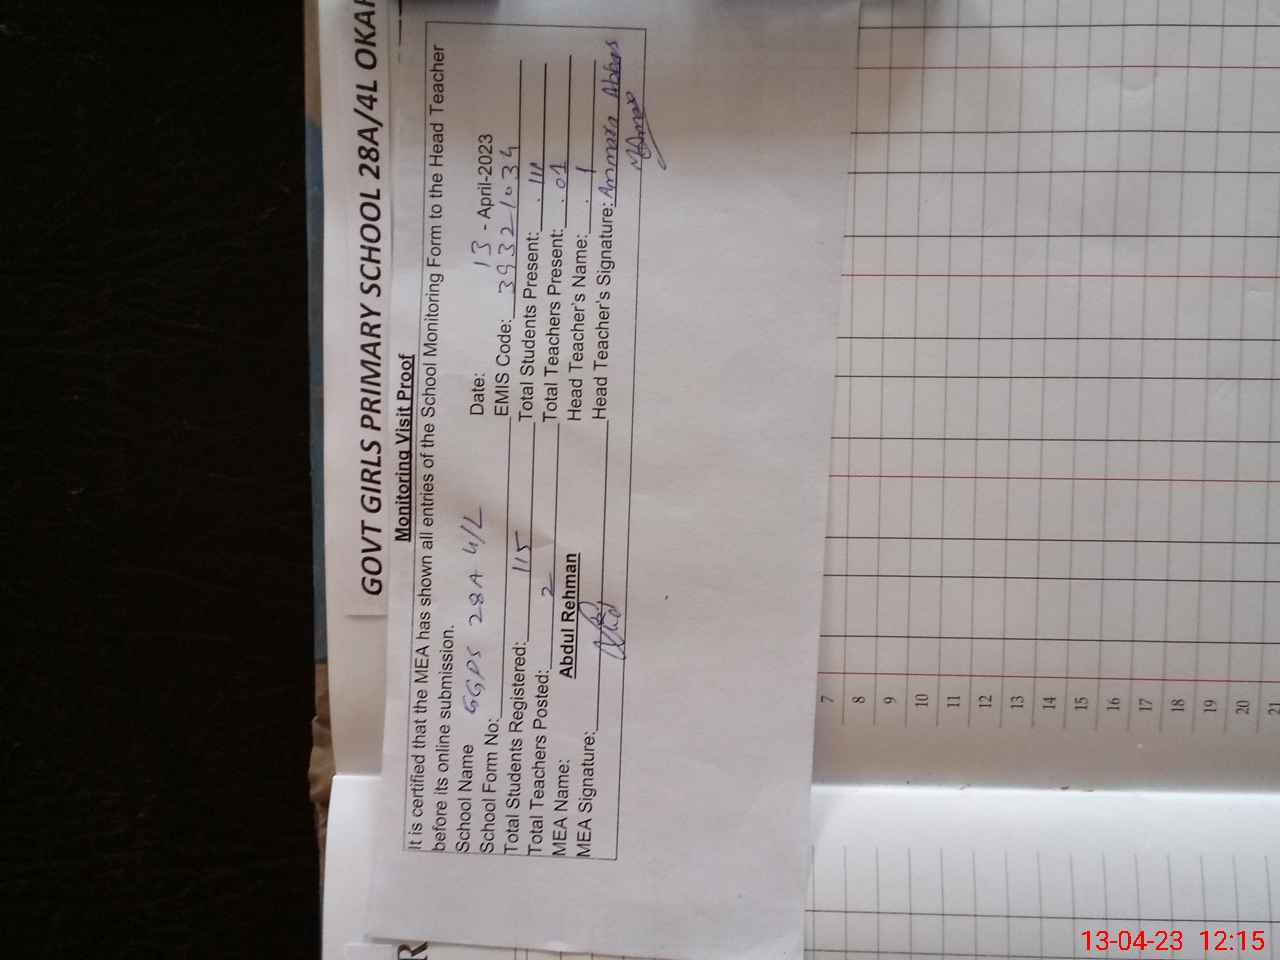 GOVT GIRLS PRIMARY SCHOOL 28A/4L OKAR
Monitoring Visit Proof
It is certified that the MEA has shown all entries of the School Monitoring Form to the Head Teacher
before its online submission.
School Name GGPS 28A 4/L Date: 13 - April-2023
School Form No: EMIS Code: 39321034
Total Students Registered: 115 Total Students Present: 111
Total Teachers Posted: 2 Total Teachers Present: 01
MEA Name: Abdul Rehman Head Teacher's Name: 1
MEA Signature: Head Teacher's Signature: Ammara Abbas
R
7
8
9
10
11
12
13
14
15
16
17
18
19
20
21
13-04-23 12:15